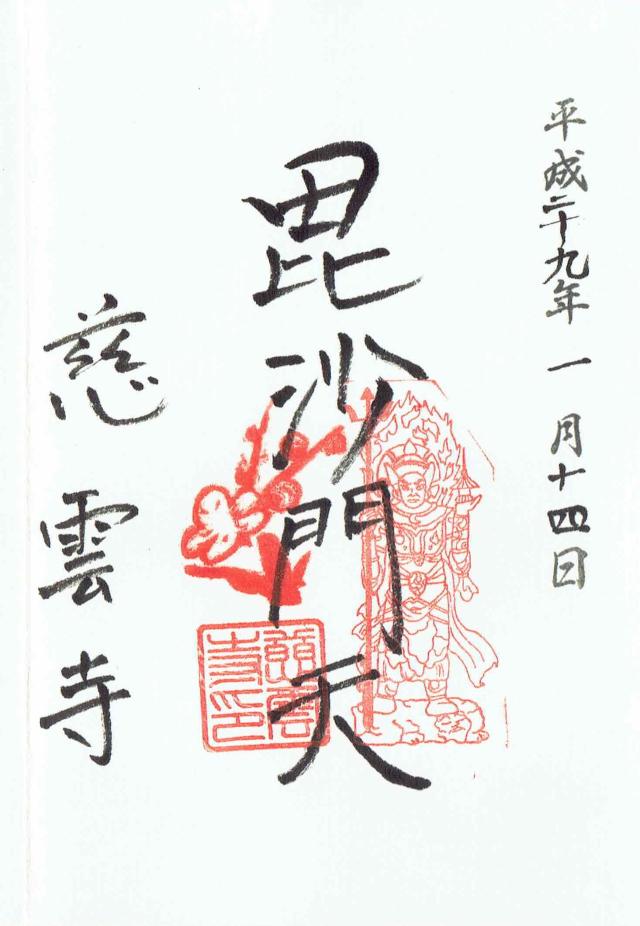 平成二十九年一月十四日
毘沙門天
慈雲寺
慈雲寺印